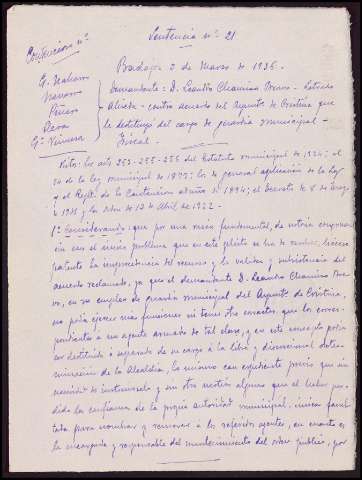 Sentencia nº 21
Contencioso nº
Badajoz 2 de Marzo de 1936.
Navarro
Piñero
Demandante: D. Leandro Chamizo - Letrado
- contra acuerdo del Ayunto. de que
le destituyó del cargo de guardia municipal -
Fiscal -
Vistos: los arts 253-255-256 del Estatuto municipal de 1924; el
de la ley municipal de 1877; los de general aplicación de la ley
y el Regto. de lo Contencioso de 1894; el Decreto de 8 de
y la orden de 12 de Abril de 1932 -
1º Considerando: que por una razón fundamental, de notoria
con el único problema que en este pleito se ha de resolver,
patente la improcedencia del recurso y la validez y subsistencia del
acuerdo reclamado, ya que el demandante D. Leandro Chamizo
en su empleo de guardia municipal del Ayunto. de
no podía ejercer más funciones ni tener otro carácter, que los corres-
pondientes a un agente armado de tal clase, y en este concepto podía
ser destituido o separado de su cargo a la libre y discrecional deter-
minación de la Alcaldía, lo mismo con expediente previo que sin
necesidad de instruirlo y sin otro motivo alguno que el haber per-
dido la confianza de la propia autoridad municipal, única facul-
tada para nombrar y remover a los referidos agentes, en cuanto es
la encargada y responsable del mantenimiento del orden público, por